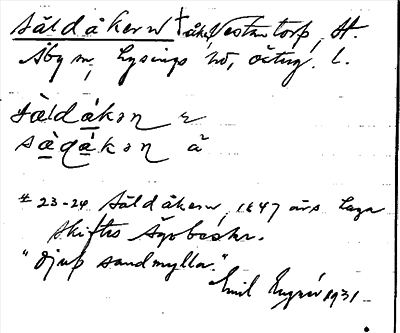 Såldåkern † åker, Västantorp, St.
Åby sn, Lysings hd, Östug. l.
sàldákən r
sàdákən ä
# 23-24 Såldåkern, 1847 års laga
skiftes Ägobeskr.
"djup sandmylla."
Emil 1931